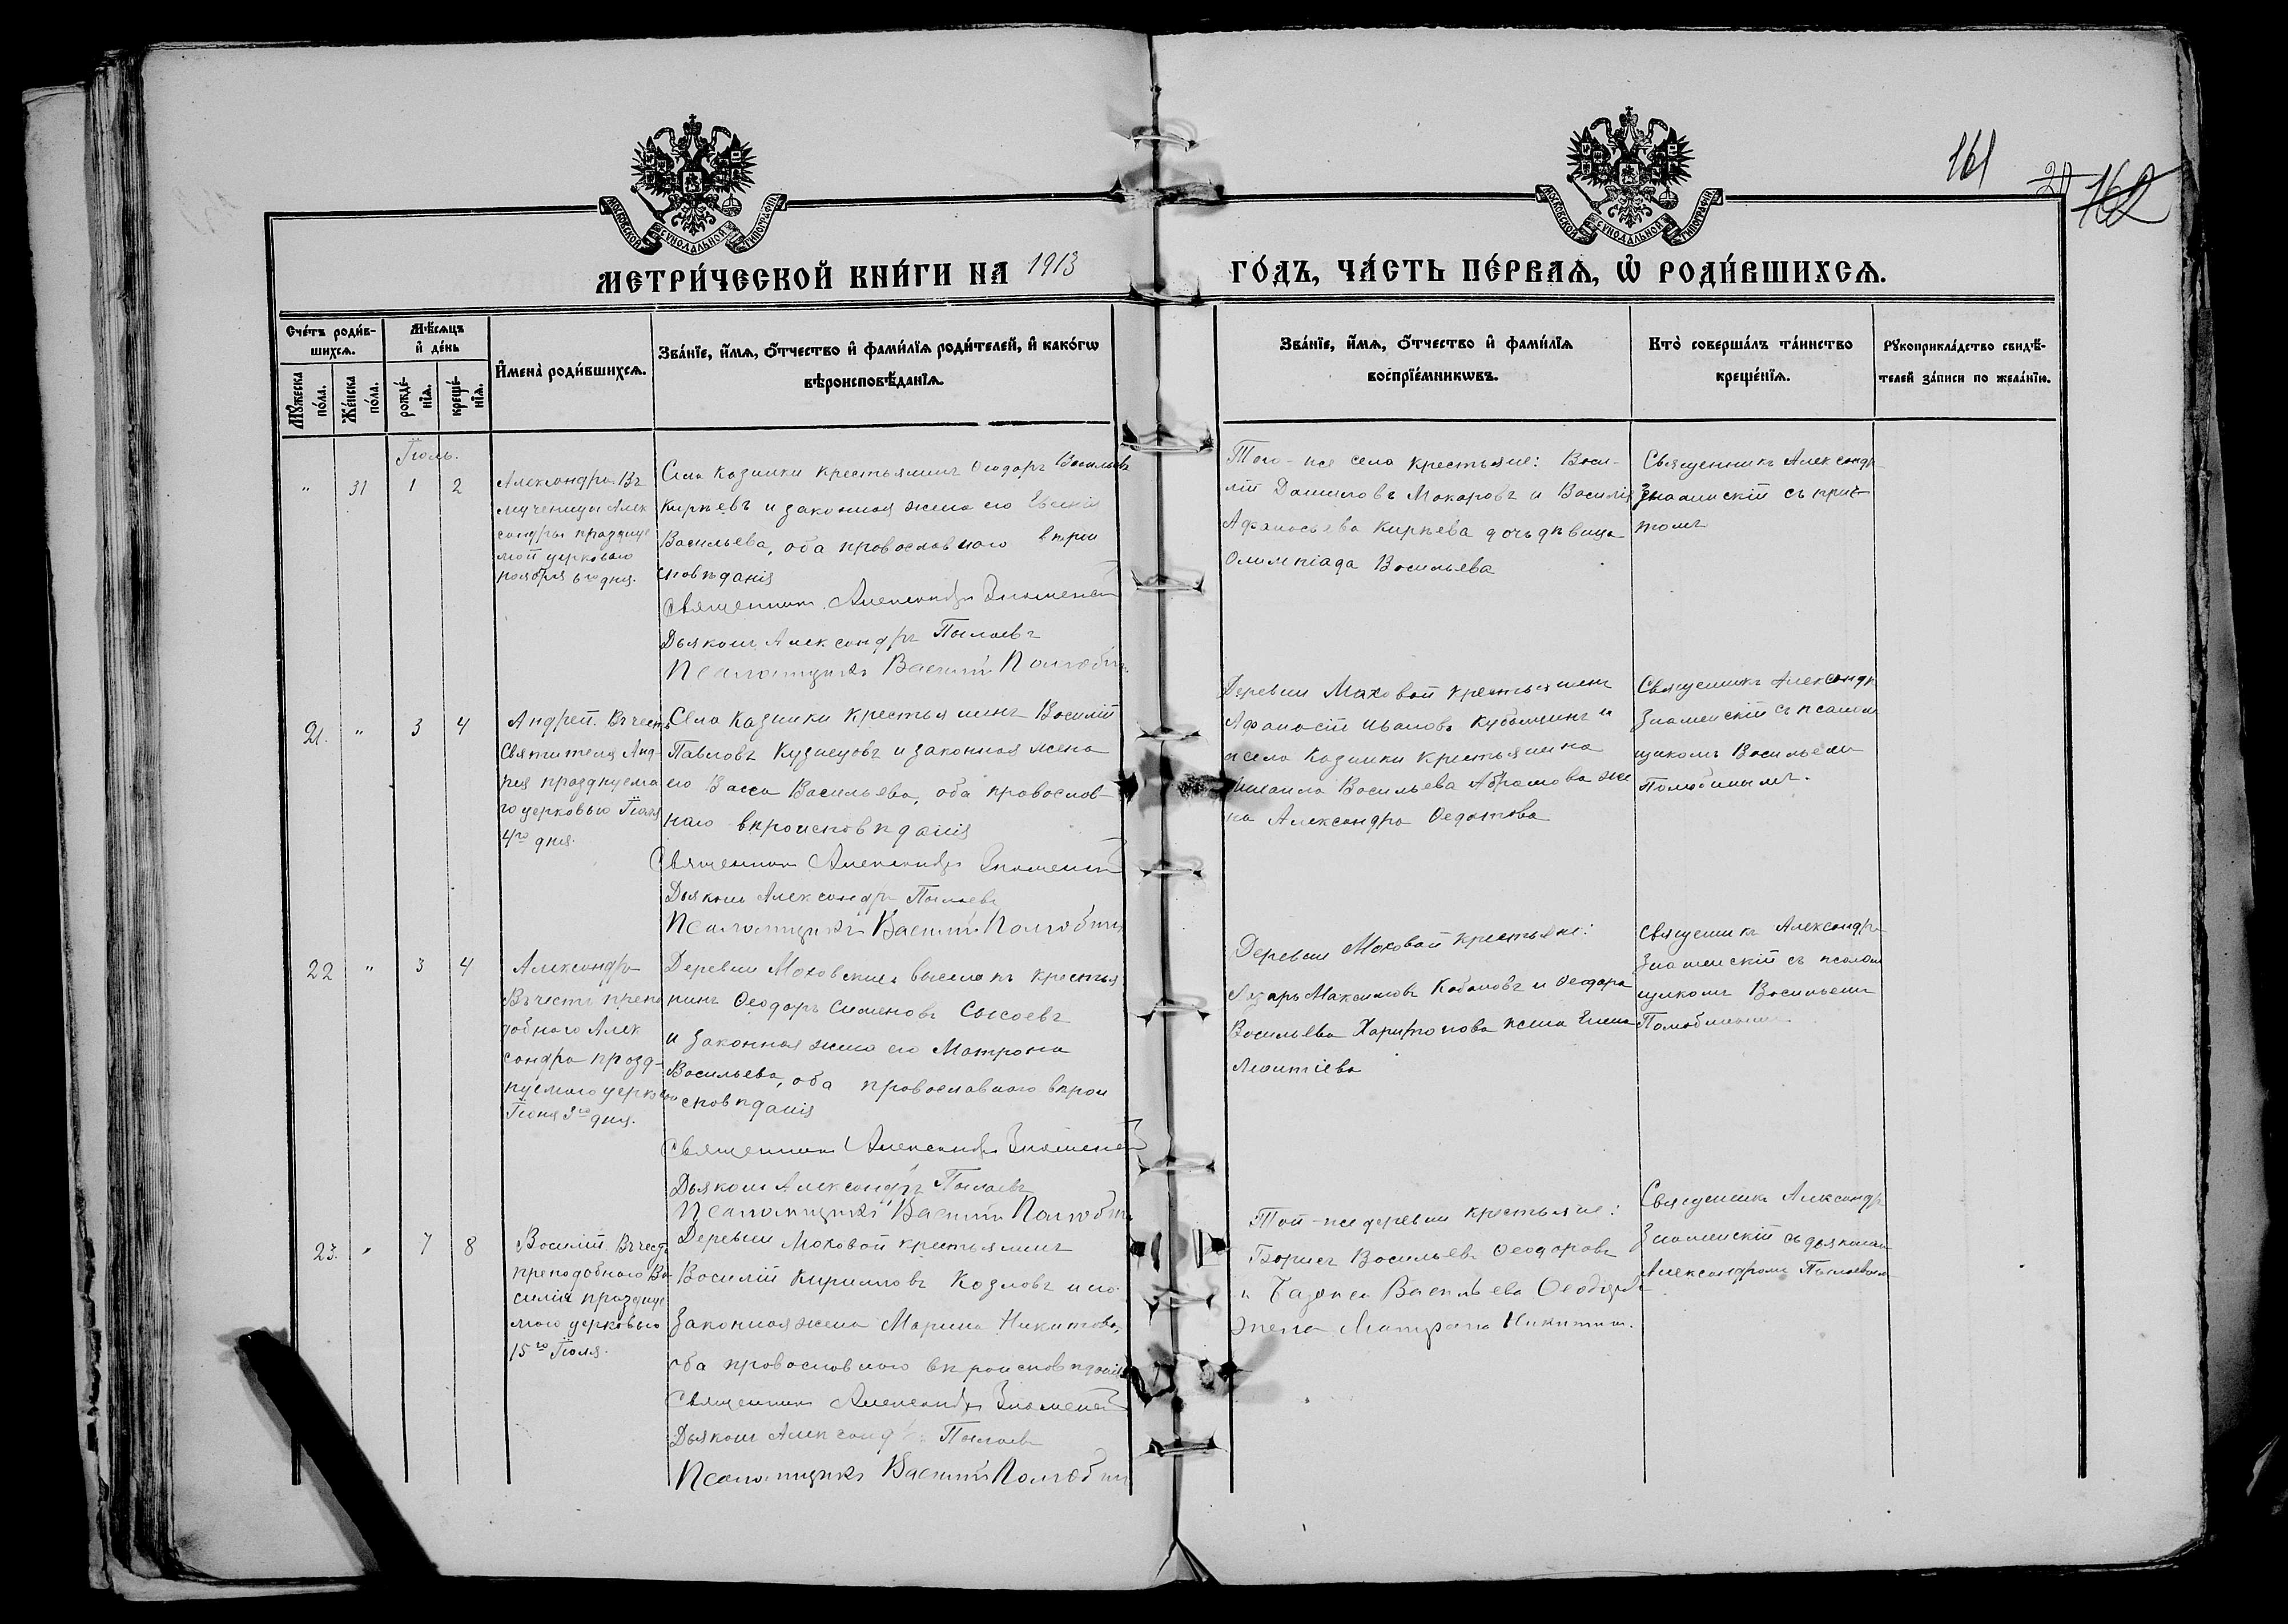 161
20
162
МОСКОВСКОЙ СУНОДАЛЬНОЙ ТИПОГРАФІИ
МОСКОВСКОЙ СУНОДАЛЬНОЙ ТИПОГРАФІИ
МЕТРИ́ЧЕСКОЙ КНИ́ГИ НА 1913
ГО́ДЪ, ЧА́СТЬ ПЕ́РВАѦ, Ѡ҆ РОДИ́ВШИХСѦ.
Сче́тъ роди́в-
шихсѧ.
Мѣ́сѧцъ
и҆ де́нь
Мꙋ́жеска
по́ла.
Же́нска
по́ла.
рожде́-
нїѧ.
креще́-
нїѧ.
И҆мена̀ роди́вшихсѧ.
Зва́нїе, и҆́мѧ, ѻ҆́тчество и҆ фами́лїѧ роди́телей, и҆ како́гѡ
вѣроисповѣ́данїѧ.
Зва́нїе, и҆́мѧ, ѻ҆́тчество и҆ фами́лїѧ
воспрїе́мникѡвъ.
Кто̀ соверша́лъ та́инство
креще́нїѧ.
Рꙋкоприкла́дство свидѣ́-
телей за́писи по жела́нїю.
Іюль.
" 31 1 2
Александра. Въ
мученицы Алек
сандры праздцуе
мой церковью
ноября 6го дня.
Села Казинки крестьянинъ Ѳеодоръ Васильевъ
Кирѣевъ и законная жена его Евгенія
Васильева, оба православнаго вѣрои
сповѣданія
Священник Александръ Знаменскій
Дьяконъ Александръ Пылаевъ
Псаломщикъ Василій Полюбинъ
Того-же села крестьяне: Васи-
лій Даниловъ Макаровъ и Василія
Афанасьева Кирѣева дочь дѣвица
Олимпіада Васильева
Священникъ Александръ
Знаменскій съ прич-
томъ
21. " 3 4
Андрей. Въ честь
Святителя Анд-
рея празднуема
го церковью Іюля
4го дня.
Села Казинки крестьянинъ Василій
Павловъ Кузнецовъ и законная жена
его Васса Васильева, оба православ-
наго вѣроисповѣданія
Священник Александръ Знаменскій
Дьяконъ Александръ Пылаевъ
Псаломщикъ Василій Полюбинъ
Деревни Маховой крестьянинъ
Афанасій Ивановъ и
села Казинки крестьянина
Михаила Васильева Абрамова же
на Александра Ѳедотова
Священникъ Александръ
Знаменскій съ псалом
щикомъ Васильемъ
Полюбинымъ.
22 " 3 4
Александръ
Въ честь препо
добнаго Алек
сандра празд-
нуемаго церковью
Іюня 9го дня.
Деревни Маховскихъ выселокъ крестья
нинъ Ѳеодоръ Сименовъ Сысоевъ
и законная жена его Матрона
Васильева, оба православнаго вѣрои
сповѣданія
Священник Александръ Знаменскій
Дьяконъ Александръ Пылаевъ
Псаломщикъ Василій Полюбинъ
Деревни Маховой крестьяне:
Лазарь Максимовъ Кабановъ и Ѳеодора
Васильева Харитонова жена Елена
Леонтіева
Священникъ Александръ
Знаменскій съ псалом
щикомъ Васильемъ
Полюбинымъ.
23. " 7 8
Василій. Въ честь
преподобнаго Ва
силія празднуе
маго церковью
15го Іюля.
Деревни Маховой крестьянинъ
Василій Кирилловъ Козловъ и его
законная жена Марина Никитова,
оба православнаго вѣроисповѣданія
Священник Александръ Знаменскій
Дьяконъ Александръ Пылаевъ
Псаломщикъ Василій Полюбинъ
Той-же деревни крестьяне:
Борисъ Васильевъ Ѳеодоровъ
и Василь ева Ѳеодоров
жена Никитина.
Священникъ Александръ
Знаменскій съ дьякономъ
Александромъ Пылаевым